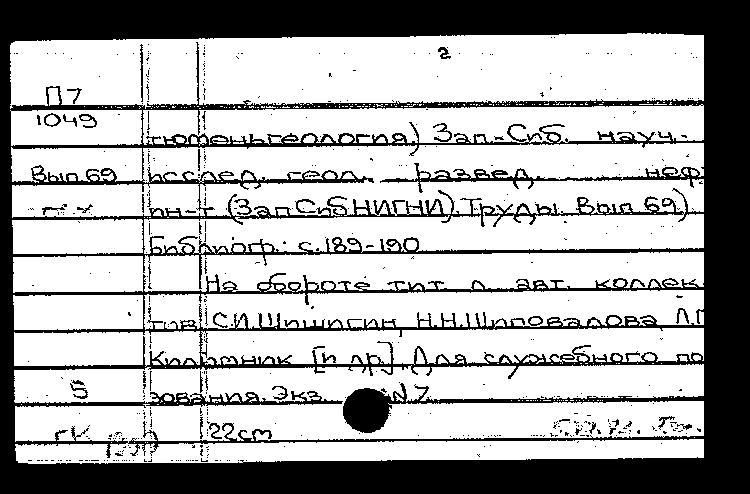 2
П7
1049
тюменьгеология.) Зап.-Сиб. науч.-
Вып.69 исслед. геол. развед. неф
ин-т (ЗапСибНИГНИ). Труды. Вып 69)
Библиогр.: с.189-190
На обороте тит л. авт. коллек
тив С.И.Шишигин, Н.Н.Шиповалова,
[и др]. Для служебного по
5 зования. Экз. N 7
гк 22cm